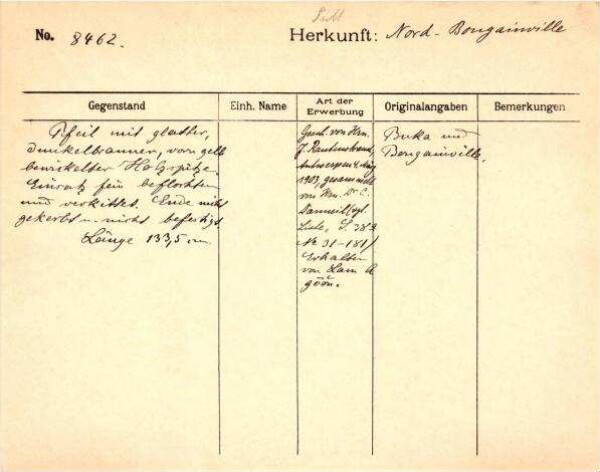 No. 8462.
Herkunft: Nord-Bougainville
Gegenstand
Einh. Name
Art der
Erwerbung
Originalangaben
Bemerkungen
Pfeil mit glatter,
dunkelbrauner, vorn gelb
bewickelter Holzspitze.
Einsatz fein beflochten
und verkittet. Ende nicht
gekerbt u. nicht befiedert.
Länge 133,5 cm
Gesch. von Hrn.
J. Rautenstrauch,
Antwerpen
1903, gesammelt
von Hrn. Dr. C.
Liste, S. 383
No 31-181)
Erhalten
von
Buka und
Bougainville.